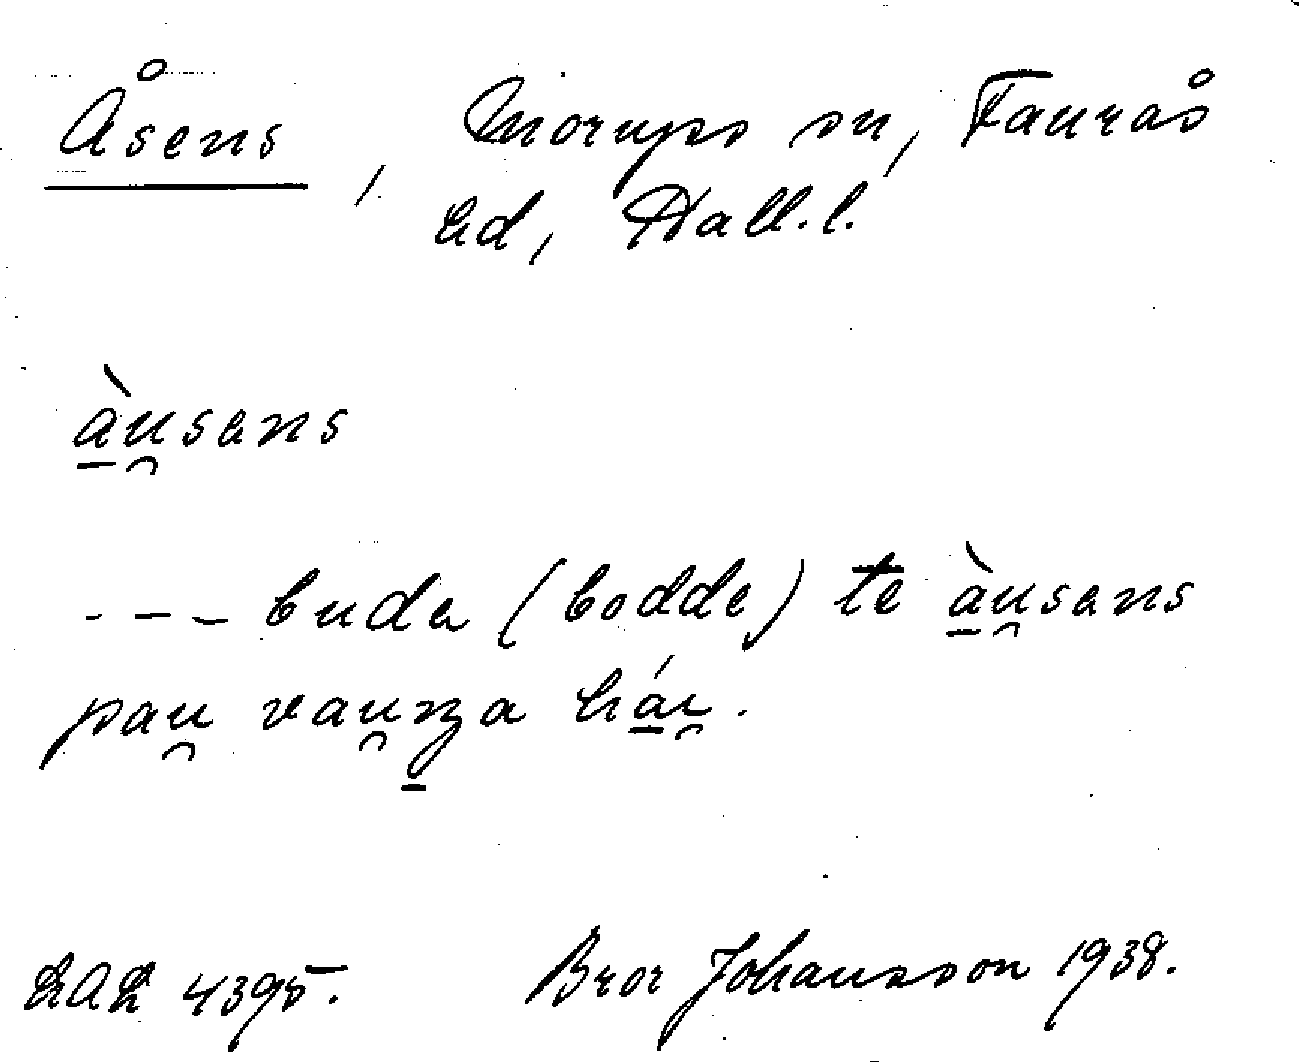 Åsens, Morups sn, Faurås
hd, Hall.l.
àu̯sans
- - - buda (bodde) te àu̯sans
pau̯ vau̯nza hái̯.
LAL 4395. Bror Johansson 1938.